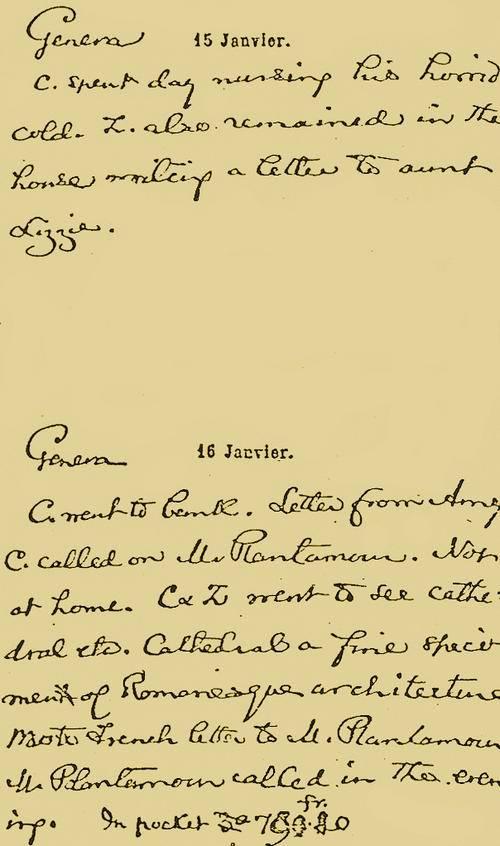 Geneva 15 Janvier.
C. spent day nursing his horrid
cold. Z. also remained in the
house writing a letter to aunt
Lizzie.
Geneva 16 Janvier.
C. went to bank. Letter from Amy
C. called on M. Plantamour. Not
at home. C & Z went to see cathe-
dral etc. Cathedral a fine speci-
men of Romanesque architecture
Wrote French letter to M. Plantamour
M. Plantamour called in the even-
ing. In pocket fr.